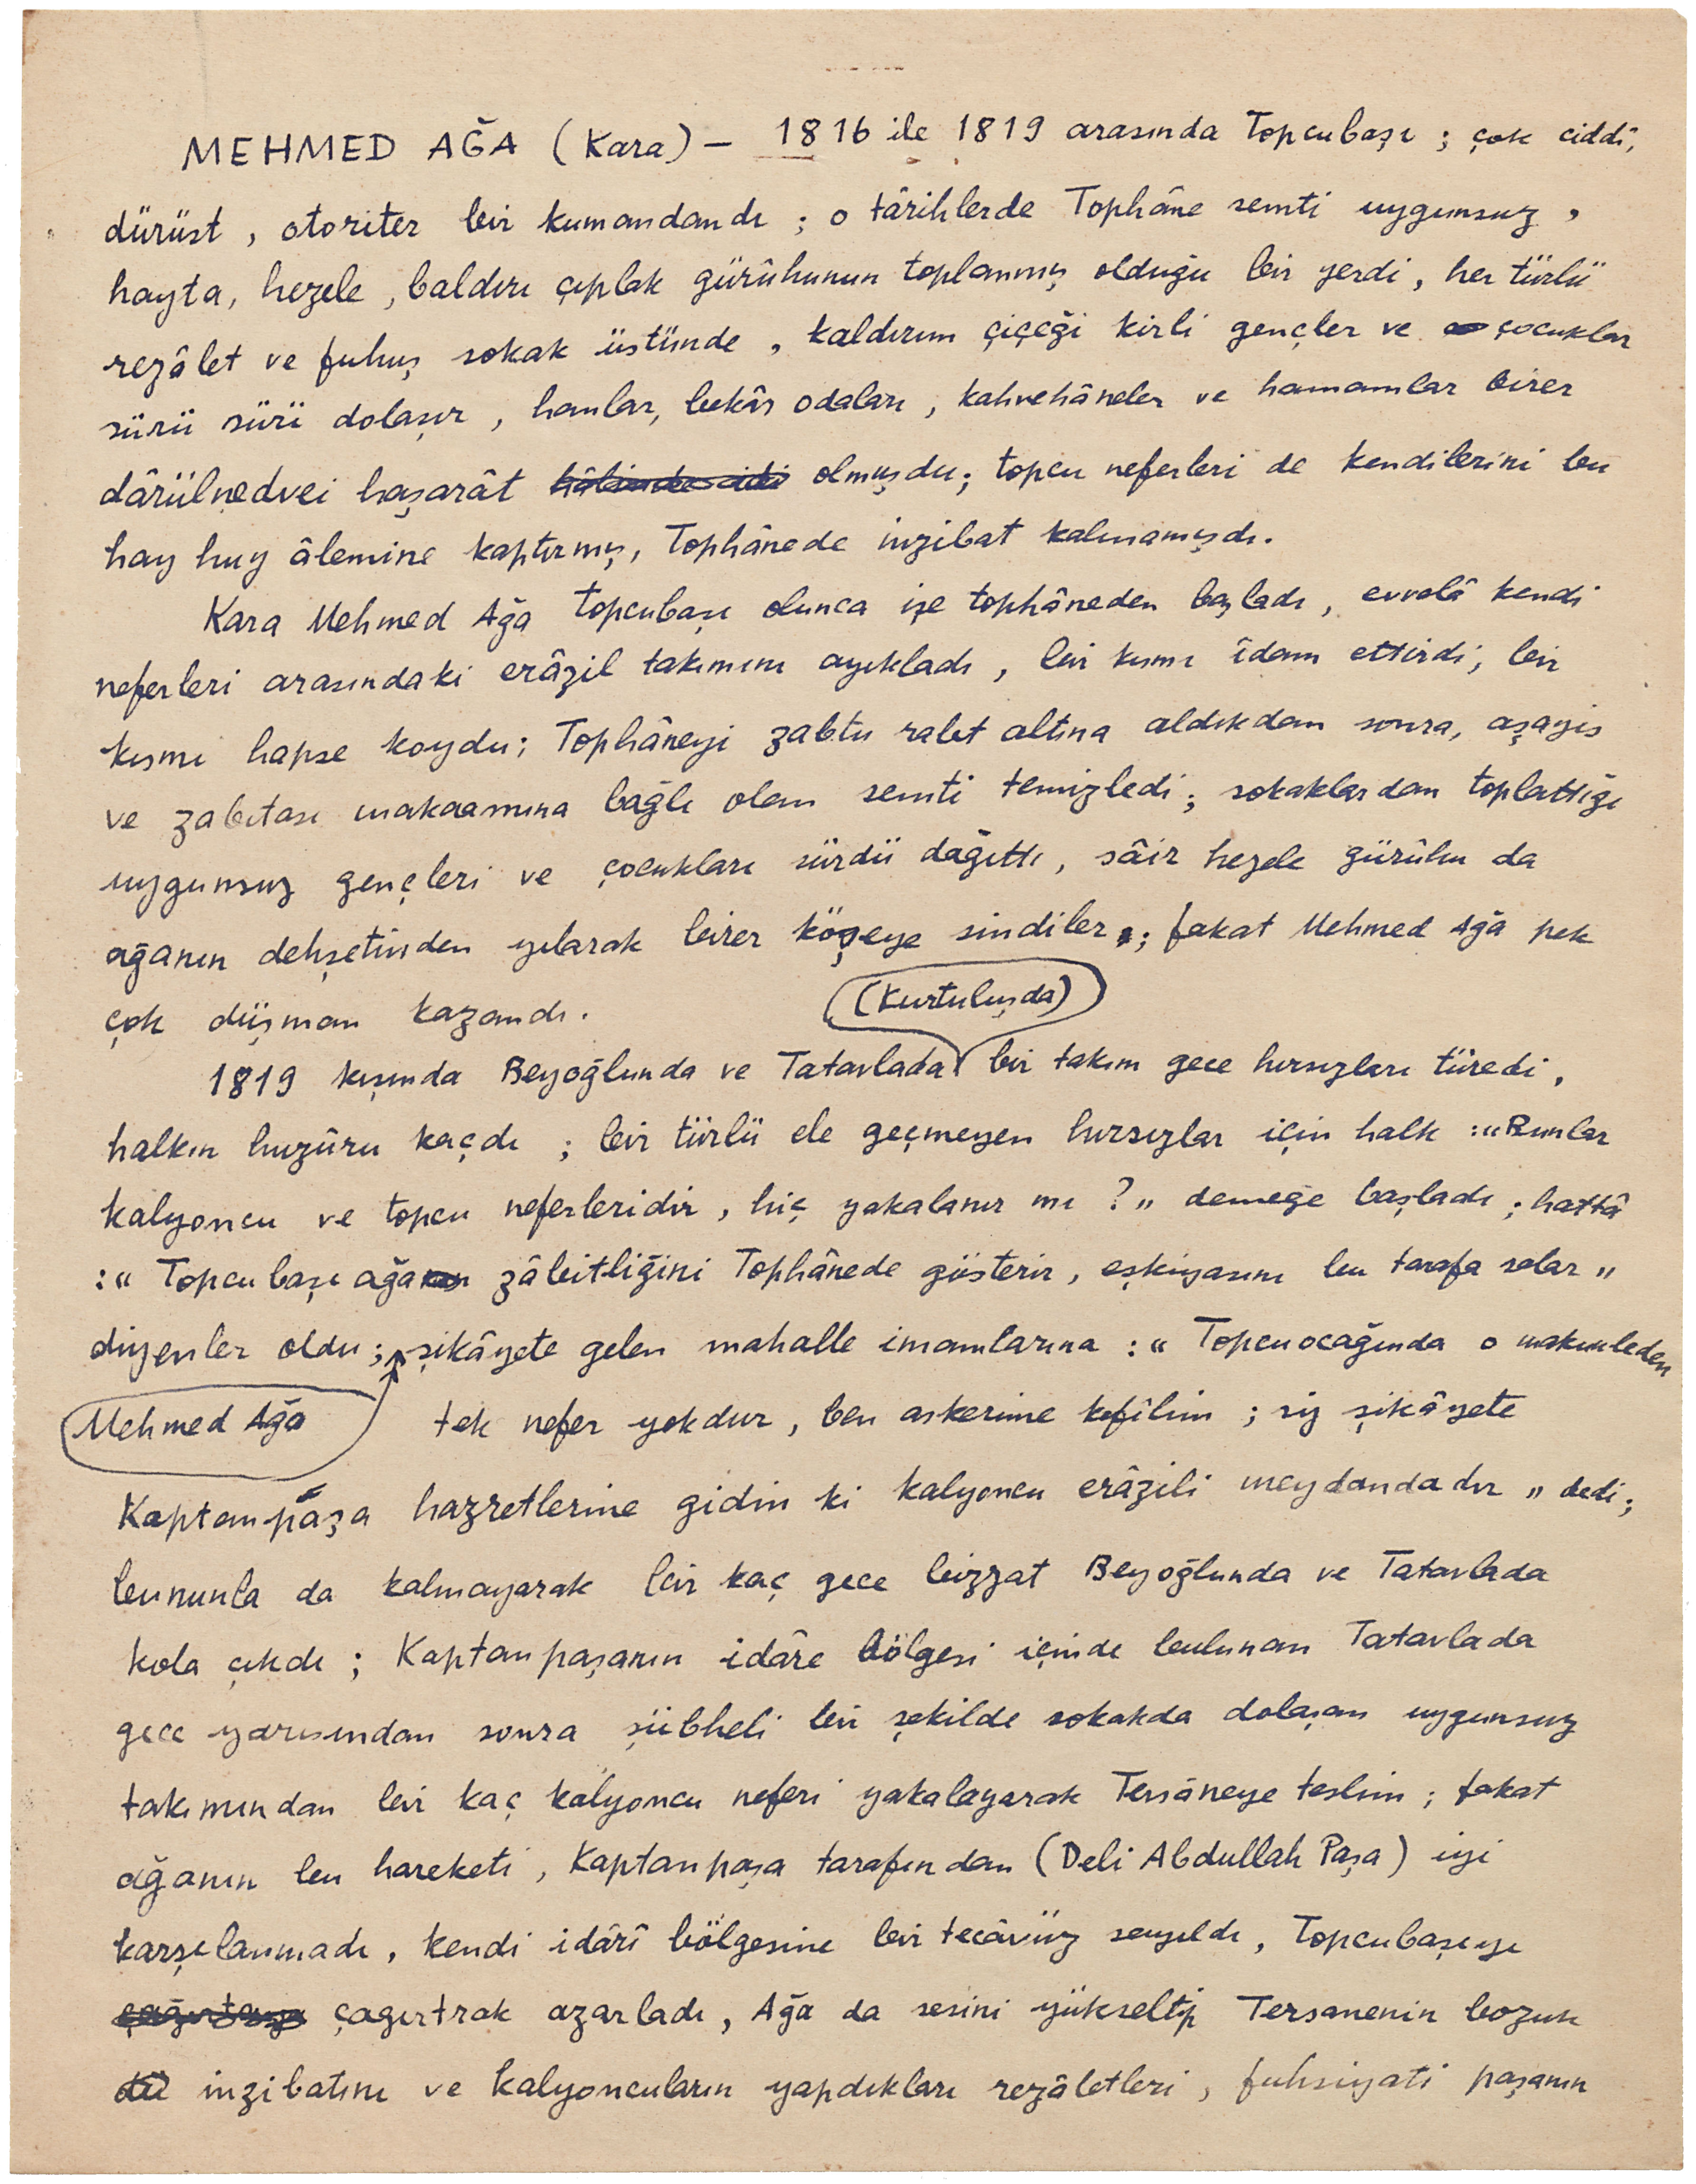 MEHMED AĞA (Kara) — 1816 ile 1819 arasında Topcubaşı ; çok ciddî,
dürüst , otoriter bir kumandandı ; o târihlerde Tophâne semti uygunsuz ,
hayta, hezele , baldırı çıplak gürûhunun toplanmış olduğu bir yerdi , her türlü
rezâlet ve fuhuş sokak üstünde , kaldırım çiçeği kirli gençler ve çocuklar
sürü sürü dolaşır , hanlar, bekâr odaları , kahvehâneler ve hamamlar birer
dârülnedvei haşarât hâlinde idi olmuşdu; topcu neferleri de kendilerini bu
hay huy âlemine kaptırmış, Tophânede inzibat kalmamışdı.
Kara Mehmed Ağa topcubaşı olunca işe tophâneden başladı, evvelâ kendi
neferleri arasındaki erâzil takımını ayıkladı , bir kısmı îdam ettirdi; bir
kısmı hapse koydu; Tophâneyi zabtu rabt altına aldıkdan sonra, aşayis
ve zabıtası makaamına bağlı olan semti temizledi ; sokaklardan toplattığı
uygunsuz gençleri ve çocukları sürdü dağıttı , sâir hezele gürûhu da
ağanın dehşetinden yılarak birer köşeye sindiler ; fakat Mehmed Ağa pek
çok düşman kazandı.
(Kurtuluşda)
1819 kışında Beyoğlunda ve Tatavlada bir takım gece hırsızları türedi ,
halkın huzûru kaçdı ; bir türlü ele geçmeyen hırsızlar için halk :"Bunlar
kalyoncu ve topcu neferleridir , hiç yakalanır mı ?" demeğe başladı ; hattâ
:" Topcubaşı ağa zâbitliğini Tophânede gösterir , eşkiyasını bu tarafa salar "
diyenler oldu ; şikâyete gelen mahalle imamlarına :" Topcuocağında o makuuleden
Mehmed Ağa tek nefer yokdur , ben askerime kefîlim ; siz şikâyete
Kaptanpaşa hazretlerine gidin ki kalyoncu erâzili meydandadır " dedi ;
bununla da kalmayarak bir kaç gece bizzat Beyoğlunda ve Tatavlada
kola çıkdı ; Kaptanpaşanın idâre bölgesi içinde bulunan Tatavlada
gece yarısından sonra şübheli bir şekilde sokakda dolaşan uygunsuz
takımından bir kaç kalyoncu neferi yakalayarak Tersâneye teslim ; fakat
ağanın bu hareketi , Kaptanpaşa tarafından (Deli Abdullah Paşa) iyi
karşılanmadı , kendi idârî bölgesine bir tecâvüz sayıldı , Topcubaşıyı
çağırtrak azarladı , Ağa da sesini yükseltip Tersanenin bozuk
inzibatını ve kalyoncuların yapdıkları rezâletleri , fuhsiyati paşanın